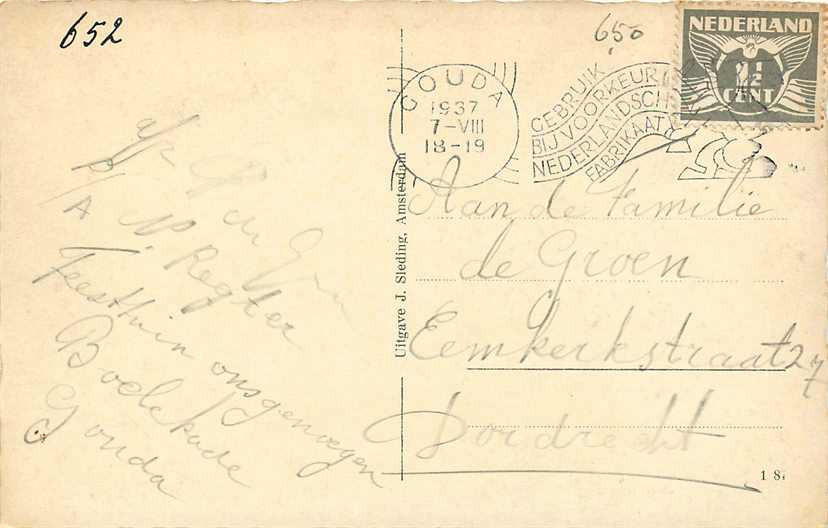 652
650
NEDERLAND
1½
CENT
GOUDA
1937
7-VIII
18-19
GEBRUIK
BIJ VOORKEUR
NEDERLANDSCH
FABRIKAAT
Uitgave J. Sleding, Amsterdam
afz de
P/A N. Regter
Feesttuin ons genoegen
Boelekade
Gouda
Aan de Familie
de Groen
Eemkerkstraat 27
Dordrecht
1 8